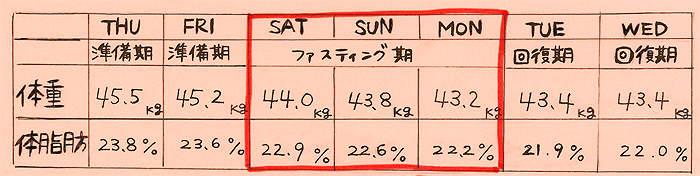 THU FRI SAT SUN MON TUE WED
準備期 準備期 ファスティング期 回復期 回復期
体重 45.5kg 45.2kg 44.0kg 43.8kg 43.2kg 43.4kg 43.4kg
体脂肪 23.8% 23.6% 22.9% 22.6% 22.2% 21.9% 22.0%